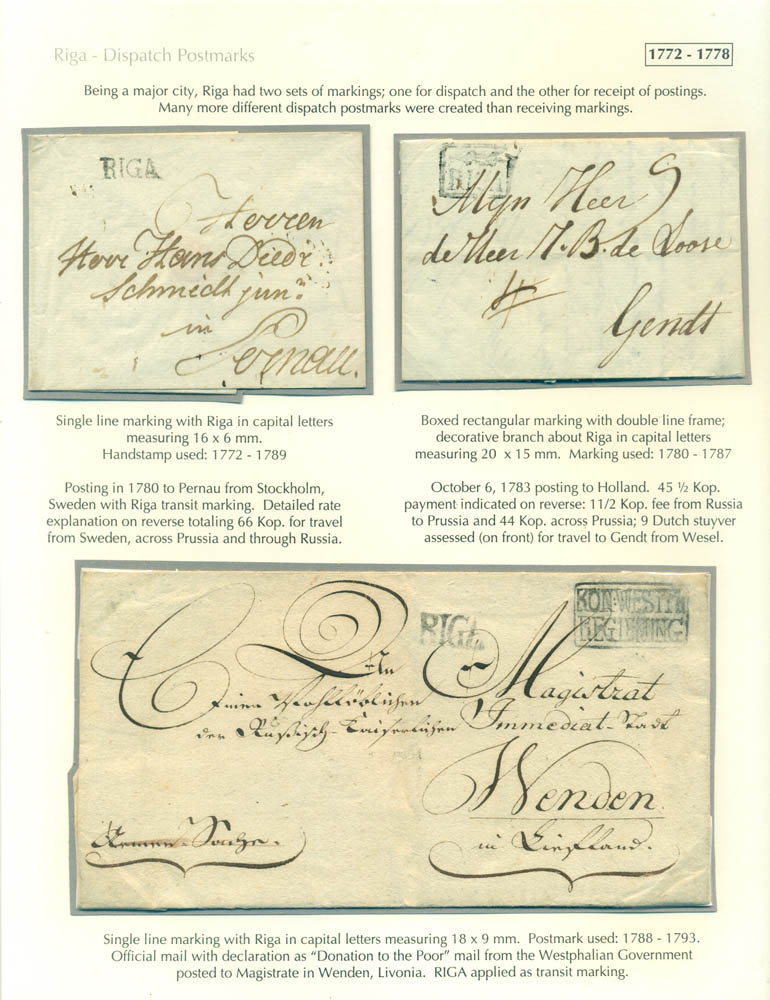 Riga - Dispatch Postmarks
1772 - 1778
Being a major city, Riga had two sets of markings; one for dispatch and the other for receipt of postings.
Many more different dispatch postmarks were created than receiving markings.
RIGA
Herren
Herr Hans Diedr.
Schmidt junr.
in
Pernau.
RIGA
Mijn Heer 9
de Heer J. B. de Loose
Gendt
Single line marking with Riga in capital letters
measuring 16 x 6 mm.
Handstamp used: 1772 - 1789
Posting in 1780 to Pernau from Stockholm,
Sweden with Riga transit marking. Detailed rate
explanation on reverse totaling 66 Kop. for travel
from Sweden, across Prussia and through Russia.
Boxed rectangular marking with double line frame;
decorative branch about Riga in capital letters
measuring 20 x 15 mm. Marking used: 1780 - 1787
October 6, 1783 posting to Holland. 45 ½ Kop.
payment indicated on reverse: 11/2 Kop. fee from Russia
to Prussia and 44 Kop. across Prussia; 9 Dutch stuyver
assessed (on front) for travel to Gendt from Wesel.
RIGA
KÖN: WESTPR
REGIERUNG
An
Einen Wohllöblichen Magistrat
der Rußisch-Kaiserlichen Immediat-Stadt
Wenden
in Liefland.
Armen-Sache.
Single line marking with Riga in capital letters measuring 18 x 9 mm. Postmark used: 1788 - 1793.
Official mail with declaration as “Donation to the Poor” mail from the Westphalian Government
posted to Magistrate in Wenden, Livonia. RIGA applied as transit marking.